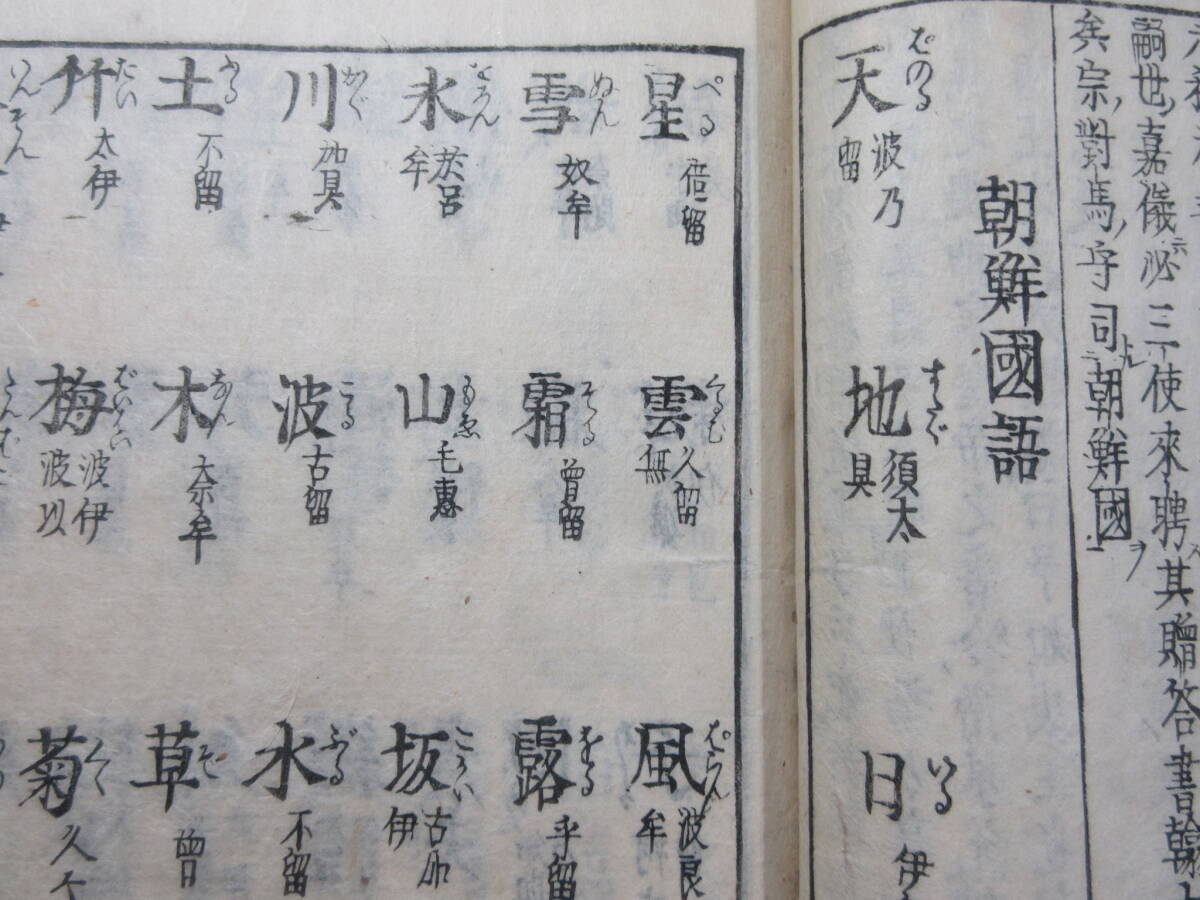 嗣世嘉儀必三使來聘其贈答書翰
矣宗對馬守司朝鮮國ヲ
朝鮮國語
天 はのる 波乃留
地 すたぐ 須太具
日 いる 伊
星 ぺる 倍留
雲 くるむ 久留無
風 はらん 波良牟
雪 ぬん 奴牟
霜 そる 曾留
露 をる 乎留
氷 をろん 於呂牟
山 もゑ 毛惠
坂 こかい 古加伊
川 かぐ 加具
波 こる 古留
水 ぶる 不留
土 ふる 不留
木 なん 奈牟
草 そ 曾
竹 たい 太伊
梅 はいはい 波伊波以
菊 くく 久